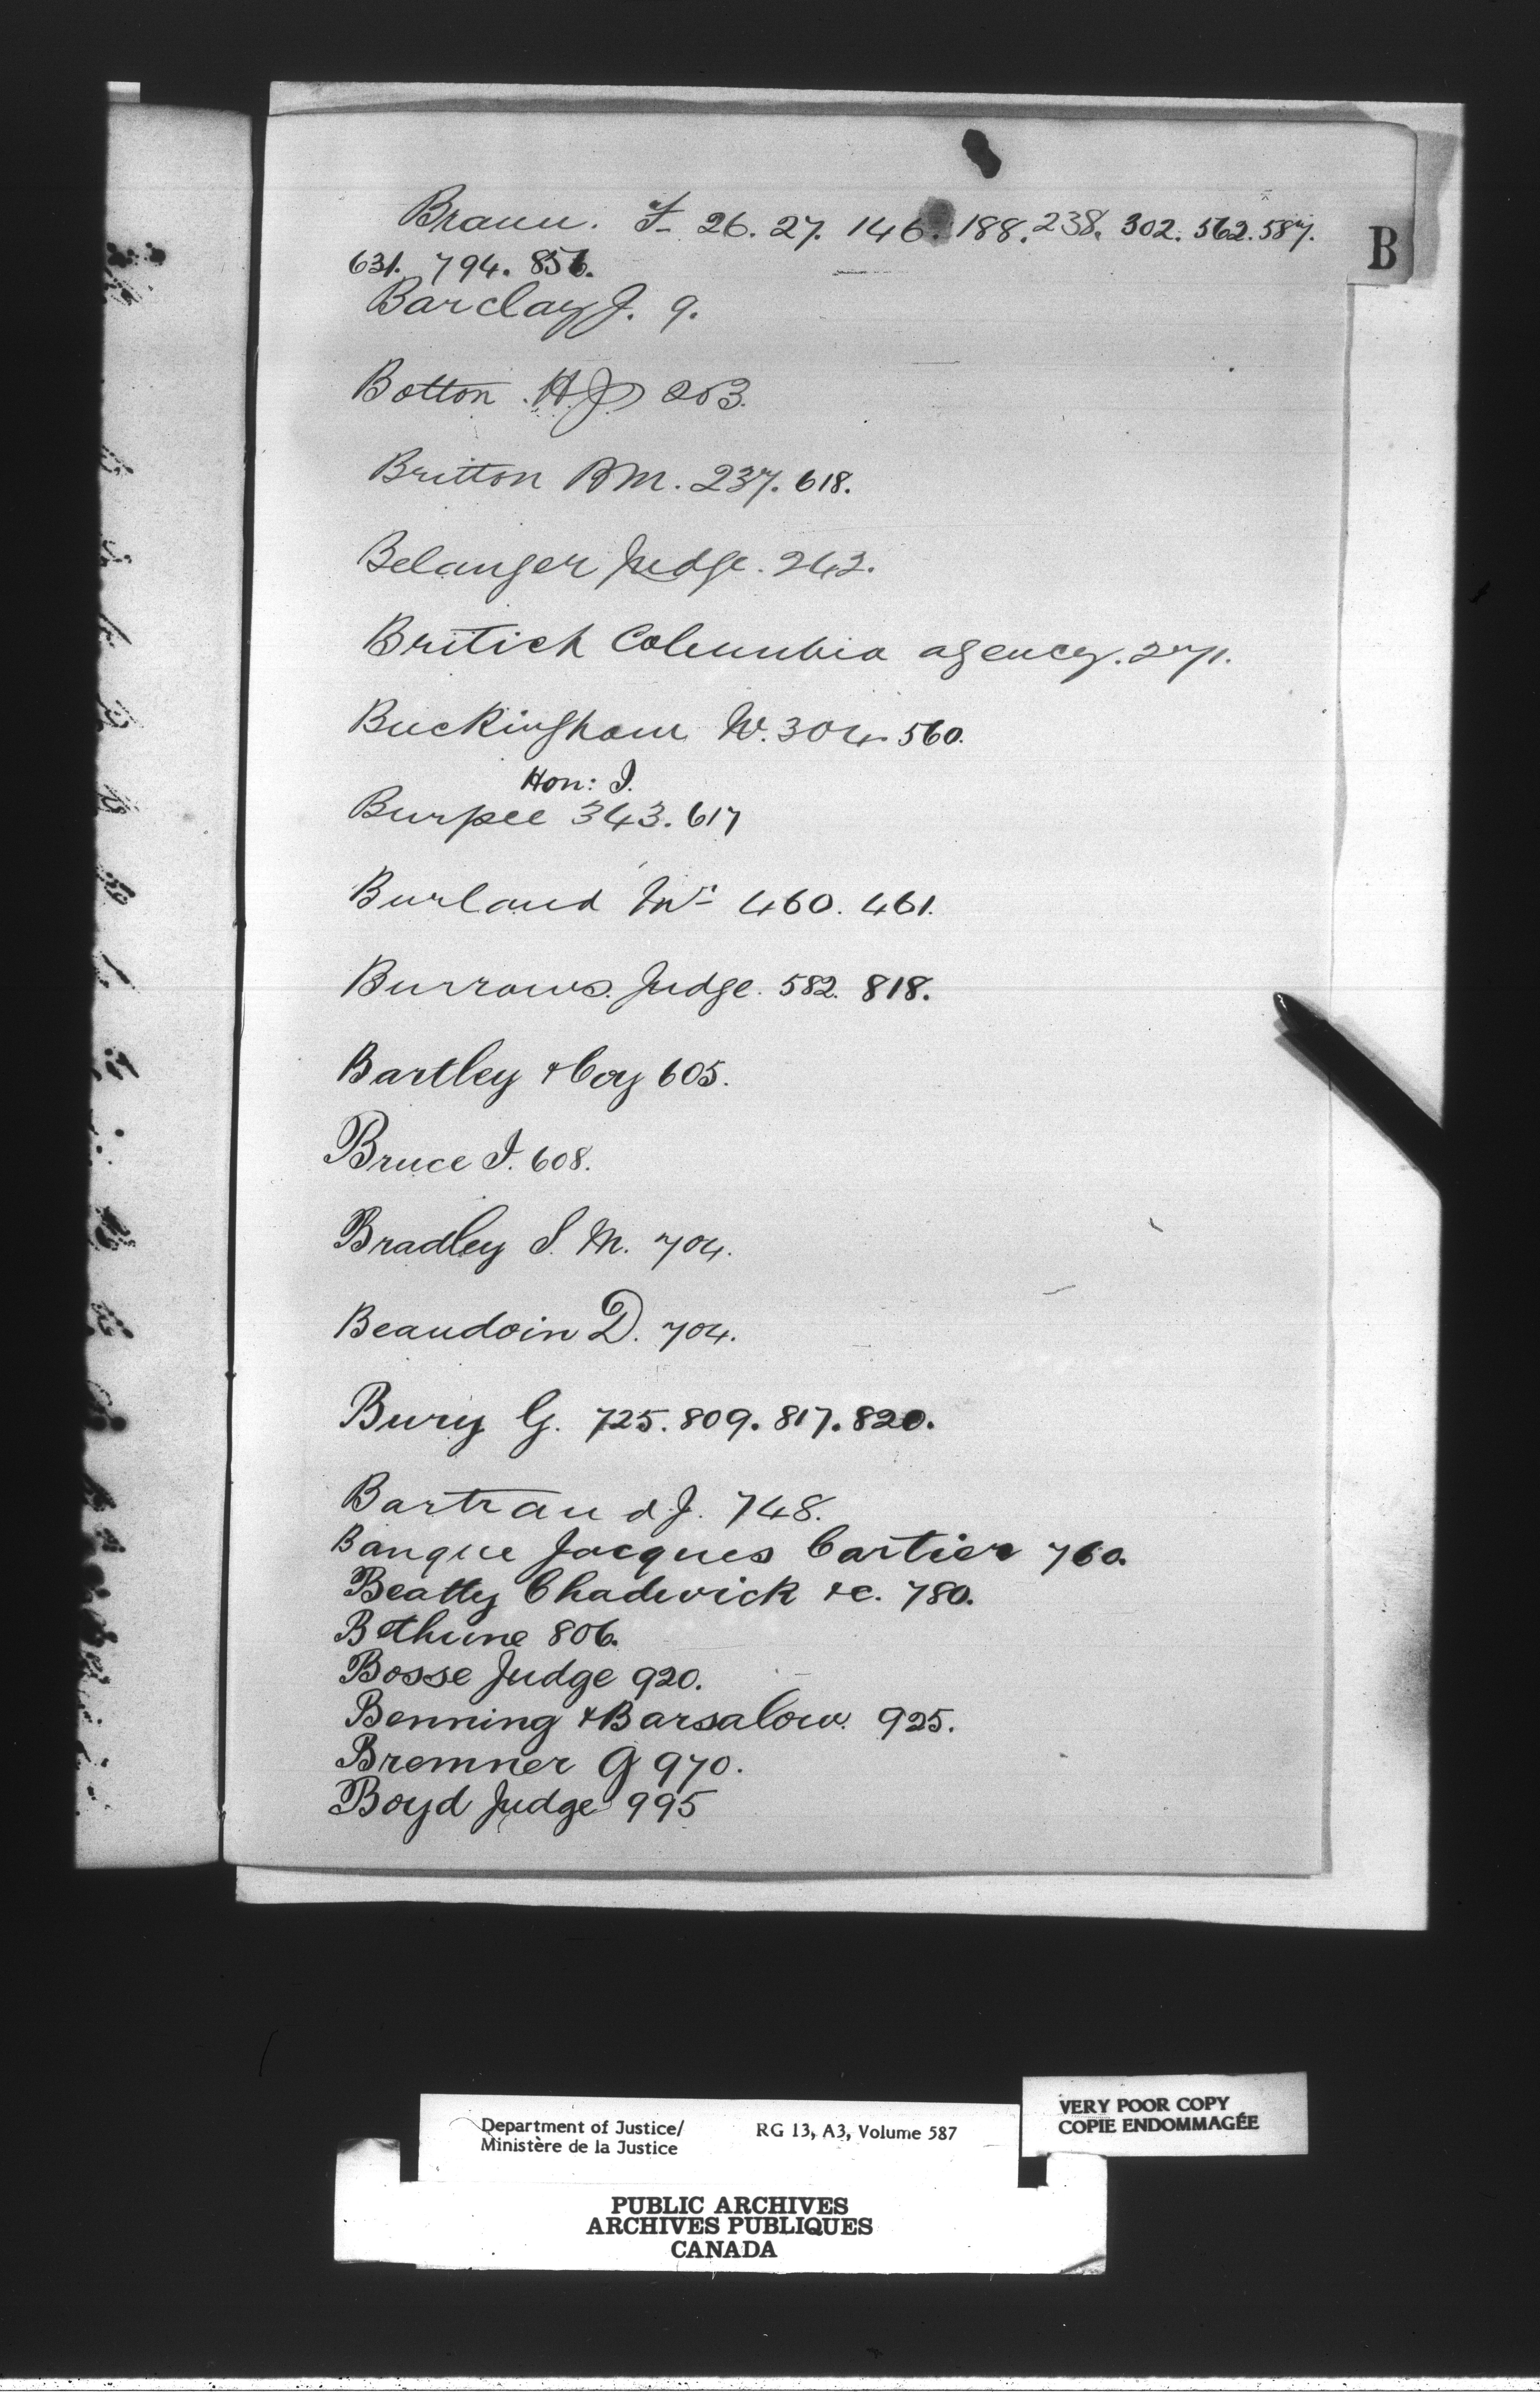 Braun. F- 26. 27. 146. 188. 238. 302. 562. 587.
B
631. 794. 856.
Barclay J. 9.
Botton. H.J. 253.
Britton BM. 237. 618.
Belanger Judge. 242.
British Columbia agency. 271.
Buckingham W. 304. 560.
Hon: I.
Burpee 343. 617
Burland Mr 460. 461.
Burrows. Judge. 582. 818.
Bartley & Coy 605.
Bruce I. 608.
Bradley S. M. 704.
Beaudoin D. 704.
Bury G. 725. 809. 817. 820.
Bartram d. J. 748.
Banque Jacques Cartier 760.
Beatty Chadwick &c. 780.
Bethune 806.
Bosse Judge 920.
Benning & Barsalow. 925.
Bremner G 970.
Boyd Judge 995
Department of Justice/
Ministère de la Justice
RG 13, A3, Volume 587
VERY POOR COPY
COPIE ENDOMMAGÉE
PUBLIC ARCHIVES
ARCHIVES PUBLIQUES
CANADA